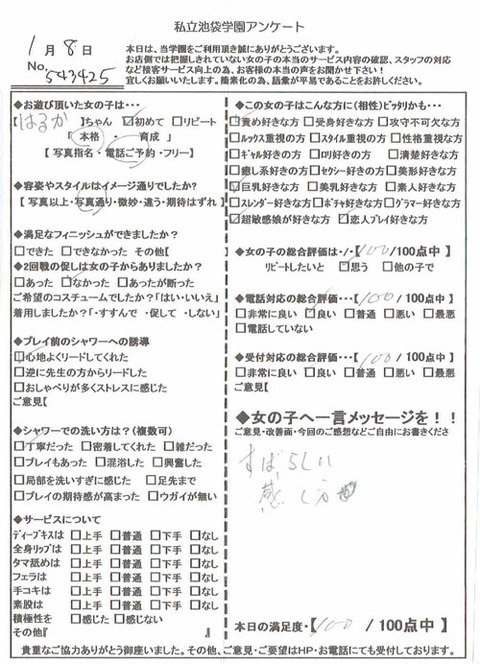 私立池袋学園アンケート
1月8日
No. 543425
本日は、当学園をご利用頂き誠にありがとうございます。
お店側では把握しきれていない女の子の本当のサービス内容の確認、スタッフの対応
など接客サービス向上の為、お客様の本当の声をお聞かせ下さい！
宜しくお願いいたします。簡素化の為、語彙が平易であることをお許しください。
◆お遊び頂いた女の子は…
【はるか】ちゃん ☑初めて □リピート
「 本格 ・ 育成 」
【 写真指名・電話ご予約・フリー】
◆容姿やスタイルはイメージ通りでしたか？
【 写真以上・写真通り・微妙・違う・期待はずれ 】
◆満足なフィニッシュができましたか？
□できた □できなかった その他【
◆2回戦の促しは女の子からありましたか？
□あった ☑なかった □あったが断った
ご希望のコスチュームでしたか？「はい・いいえ」
着用しましたか？「・すすんで ・促して ・しない」
◆プレイ前のシャワーへの誘導
☑心地よくリードしてくれた
□逆に先生の方からリードした
□おしゃべりが多くストレスに感じた
ご意見【
◆シャワーでの洗い方は？（複数可）
☑丁寧だった □密着してくれた □雑だった
□プレイもあった □混浴した □興奮した
□局部を洗いすぎに感じた □足先まで
□プレイの期待感が高まった □ウガイが無い
◆サービスについて
ディープキスは □上手 □普通 □下手 □なし
全身リップは □上手 □普通 □下手 □なし
タマ舐めは □上手 □普通 □下手 □なし
フェラは □上手 □普通 □下手 □なし
手コキは □上手 □普通 □下手 □なし
素股は □上手 □普通 □下手 □なし
積極性を □感じた □感じない
その他『 』
◆この女の子はこんな方に（相性）ピッタリかも…
☑責め好きな方 □受身好きな方 □攻守不可欠な方
□ルックス重視の方 □スタイル重視の方 □性格重視な方
□ギャル好きの方 □ロリ好きの方 □清楚好きな方
□癒し系好きの方 □セクシー好きの方 □美形好きな方
☑巨乳好きな方 □美乳好きな方 □素人好きな方
□スレンダー好きな方 □ポチャ好きな方 □グラマー好きな方
☑超敏感娘が好きな方 ☑恋人プレイ好きな方
◆女の子の総合評価は・・【100/100点中 】
リピートしたいと ☑思う □他の子で
◆電話対応の総合評価…【100/100点中】
□非常に良い ☑良い □普通 □悪い □最悪
□電話していない
◆受付対応の総合評価…【100/100点中】
□非常に良い ☑良い □普通 □悪い □最悪
ご意見【
◆女の子へ一言メッセージを！！
ご意見・改善面・今回のご感想などご自由にお書きくださ
すばらしい
感じ方
本日の満足度・【100/100点中】
貴重なご協力ありがとう御座いました。その他、ご意見・ご要望はHP・お電話にても受付しております。